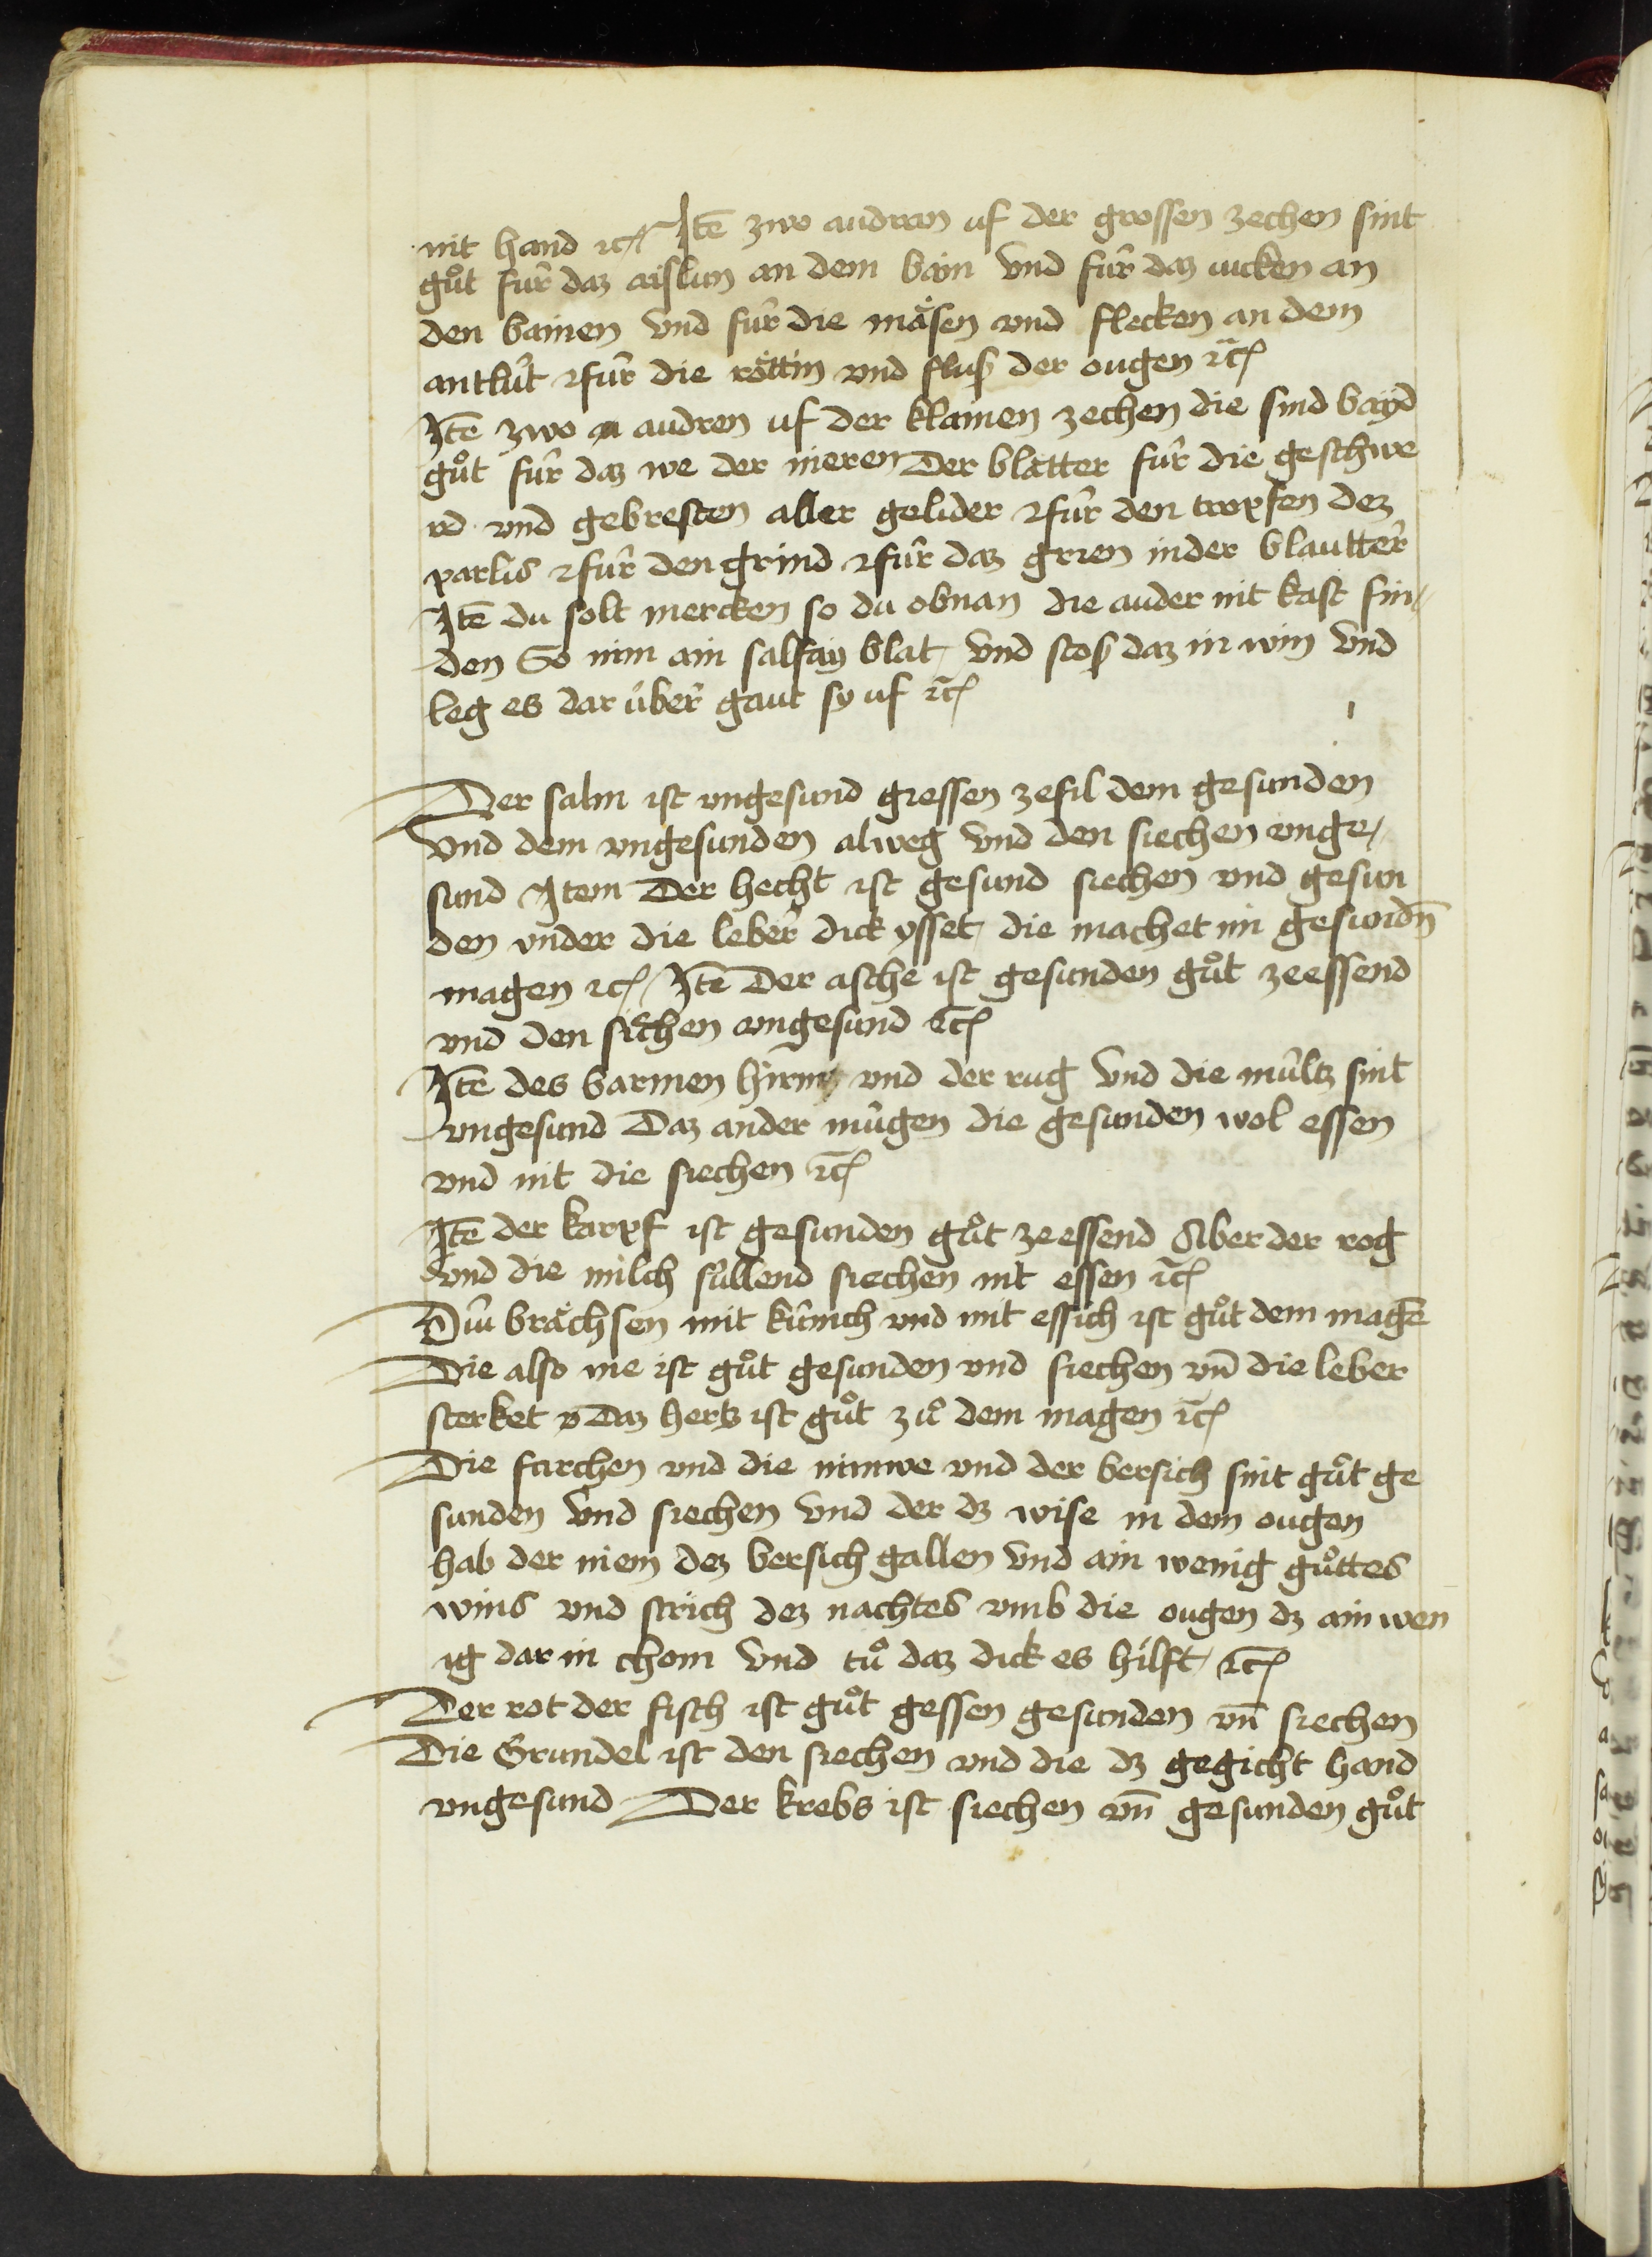 nit hand ⁊c̃ Itē zwo audren uf der grossen zechen sint
gůt für daz aislun an dem bain vnd für daz iucken an
den bainen vnd für die mäsen vnd flecken an dem
antlüt ⁊ für die röttin vnd fluß der ougen ⁊c̃
Itē zwo audren uf der klainen zechen die sind bayd
gůt für daz we der nieren der blatter für die geschwe
rd vnd gebresten aller gelider ⁊ für den tropfen dez
parlis ⁊ für den grind ⁊ für daz grien in der blautter
Itē du solt mercken so du obnan die auder nit kast fin-
den So nim ain salfay blat vnd stoß daz in win vnd
leg es dar über gaut sy uf ⁊c̃
Der salm ist vngesund gressen ze fil dem gesunden
vnd dem vngesunden alweg vnd den siechen onge-
sund Item Der hecht ist gesund siechen vnd gesun
den vnder die leber dick ysset die machet im gesundn̄
magen ⁊c̃ Itē Der asche ist gesunden gůt ze essend
vnd den siechen ongesund ⁊c̃
Itē des barmen hirn vnd der rug vnd die mültz sint
vngesund Daz ander mügen die gesunden wol essen
vnd nit die siechen ⁊c̃
Itē der karpf ist gesunden gůt ze essend Aber der rog
vnd die milch süllend siechen nit essen ⁊c̃
Diu brächsen mit kümich vnd mit essich ist gůt dem magē
Die also nie ist gůt gesunden vnd siechen vn̄ die leber
sterket v Daz hertz ist gůt zů dem magen ⁊c̃
Die furchen vnd die ninwe vnd der bersich sint gůt ge
sunden vnd siechen vnd der dz wise in dem ougen
hab der niem dez bersich gallen vnd ain wenig gůttes
wins vnd strich dez nachtes vmb die ougen dz ain wen
ig dar in chom vnd tů daz dick es hilft ⁊c̃
Der rot der fisch ist gůt gessen gesunden vn̄ siechen
Die Grundel ist den siechen vnd die dz gegicht hand
vngesund Der krebs ist siechen vn̄ gesunden gůt